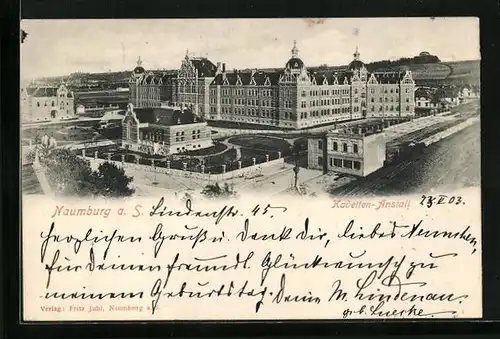 Naumburg a. S. Lindenstr. 45.
Kadetten-Anstalt
23/II 03.
Herzlichen Gruß u. Dank Dir, liebes Aennchen,
für Deinen freundl. Glückwunsch zu
meinem Geburtstag. Deine M. Lindenau
geb.
Verlag: Fritz Jubl, Naumburg a.